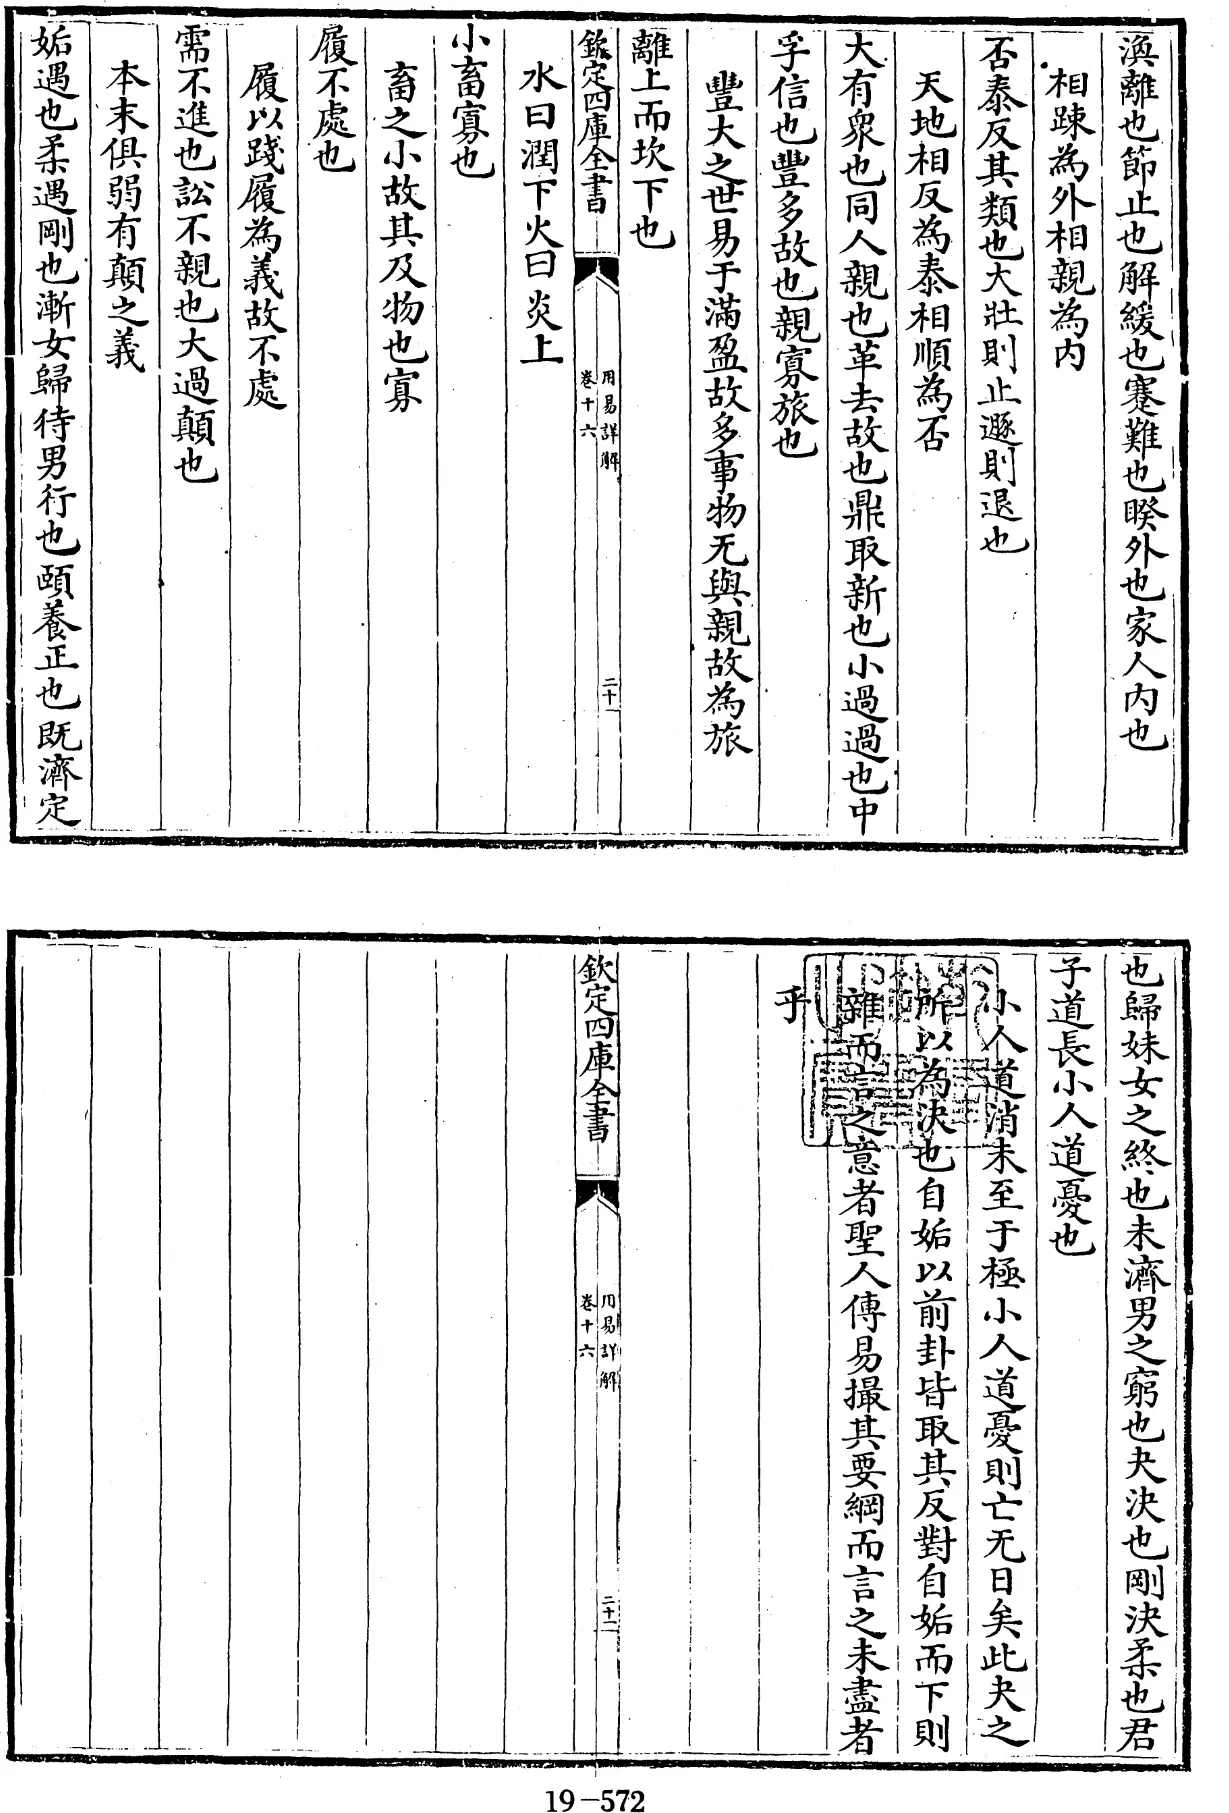 渙離也節止也解緩也蹇難也睽外也家人内也
相踈為外相親為内
否泰反其類也大壯則止遯則退也
天地相反為泰相順為否
大有衆也同人親也革去故也鼎取新也小過過也中
孚信也豐多故也親寡旅也
豐大之世易于滿盈故多事物无與親故為旅
離上而坎下也
欽定四庫全書
用易詳解
卷十六
二十一
水曰潤下火曰炎上
小畜寡也
畜之小故其及物也寡
履不處也
履以踐履為義故不處
需不進也訟不親也大過顛也
本末俱弱有顛之義
姤遇也柔遇剛也漸女歸待男行也頤養正也既濟定
也歸妹女之終也未濟男之窮也夬決也剛決柔也君
子道長小人道憂也
小人道消未至于極小人道憂則亡无日矣此夬之
所以為決也自姤以前卦皆取其反對自姤而下則
雜而言之意者聖人傳易撮其要綱而言之未盡者
乎
欽定四庫全書
用易詳解
卷十六
二十二
19-572